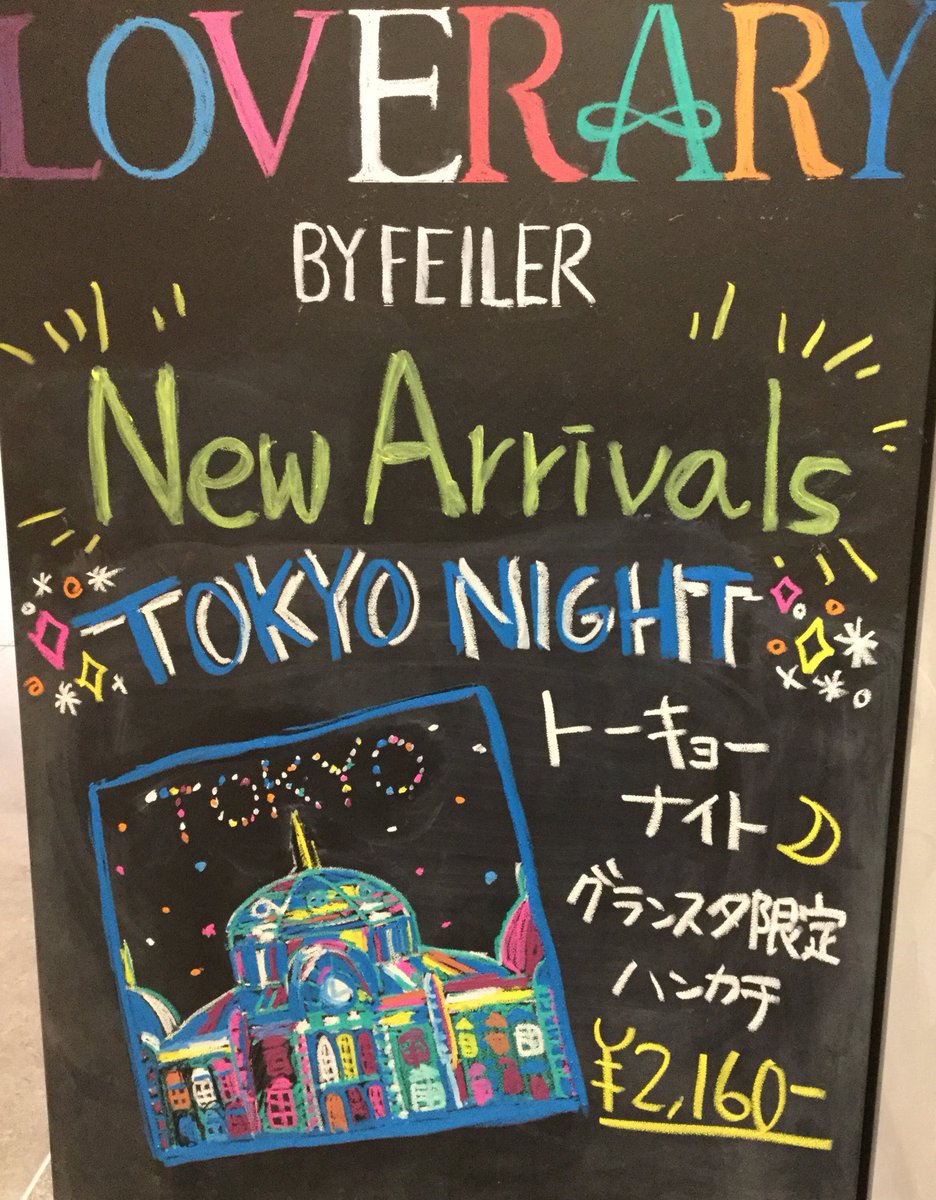 LOVERARY
BY FEILER
New Arrivals
TOKYO NIGHT
TOKYO
トーキョー
ナイト
グランスタ限定
ハンカチ
¥2,160-